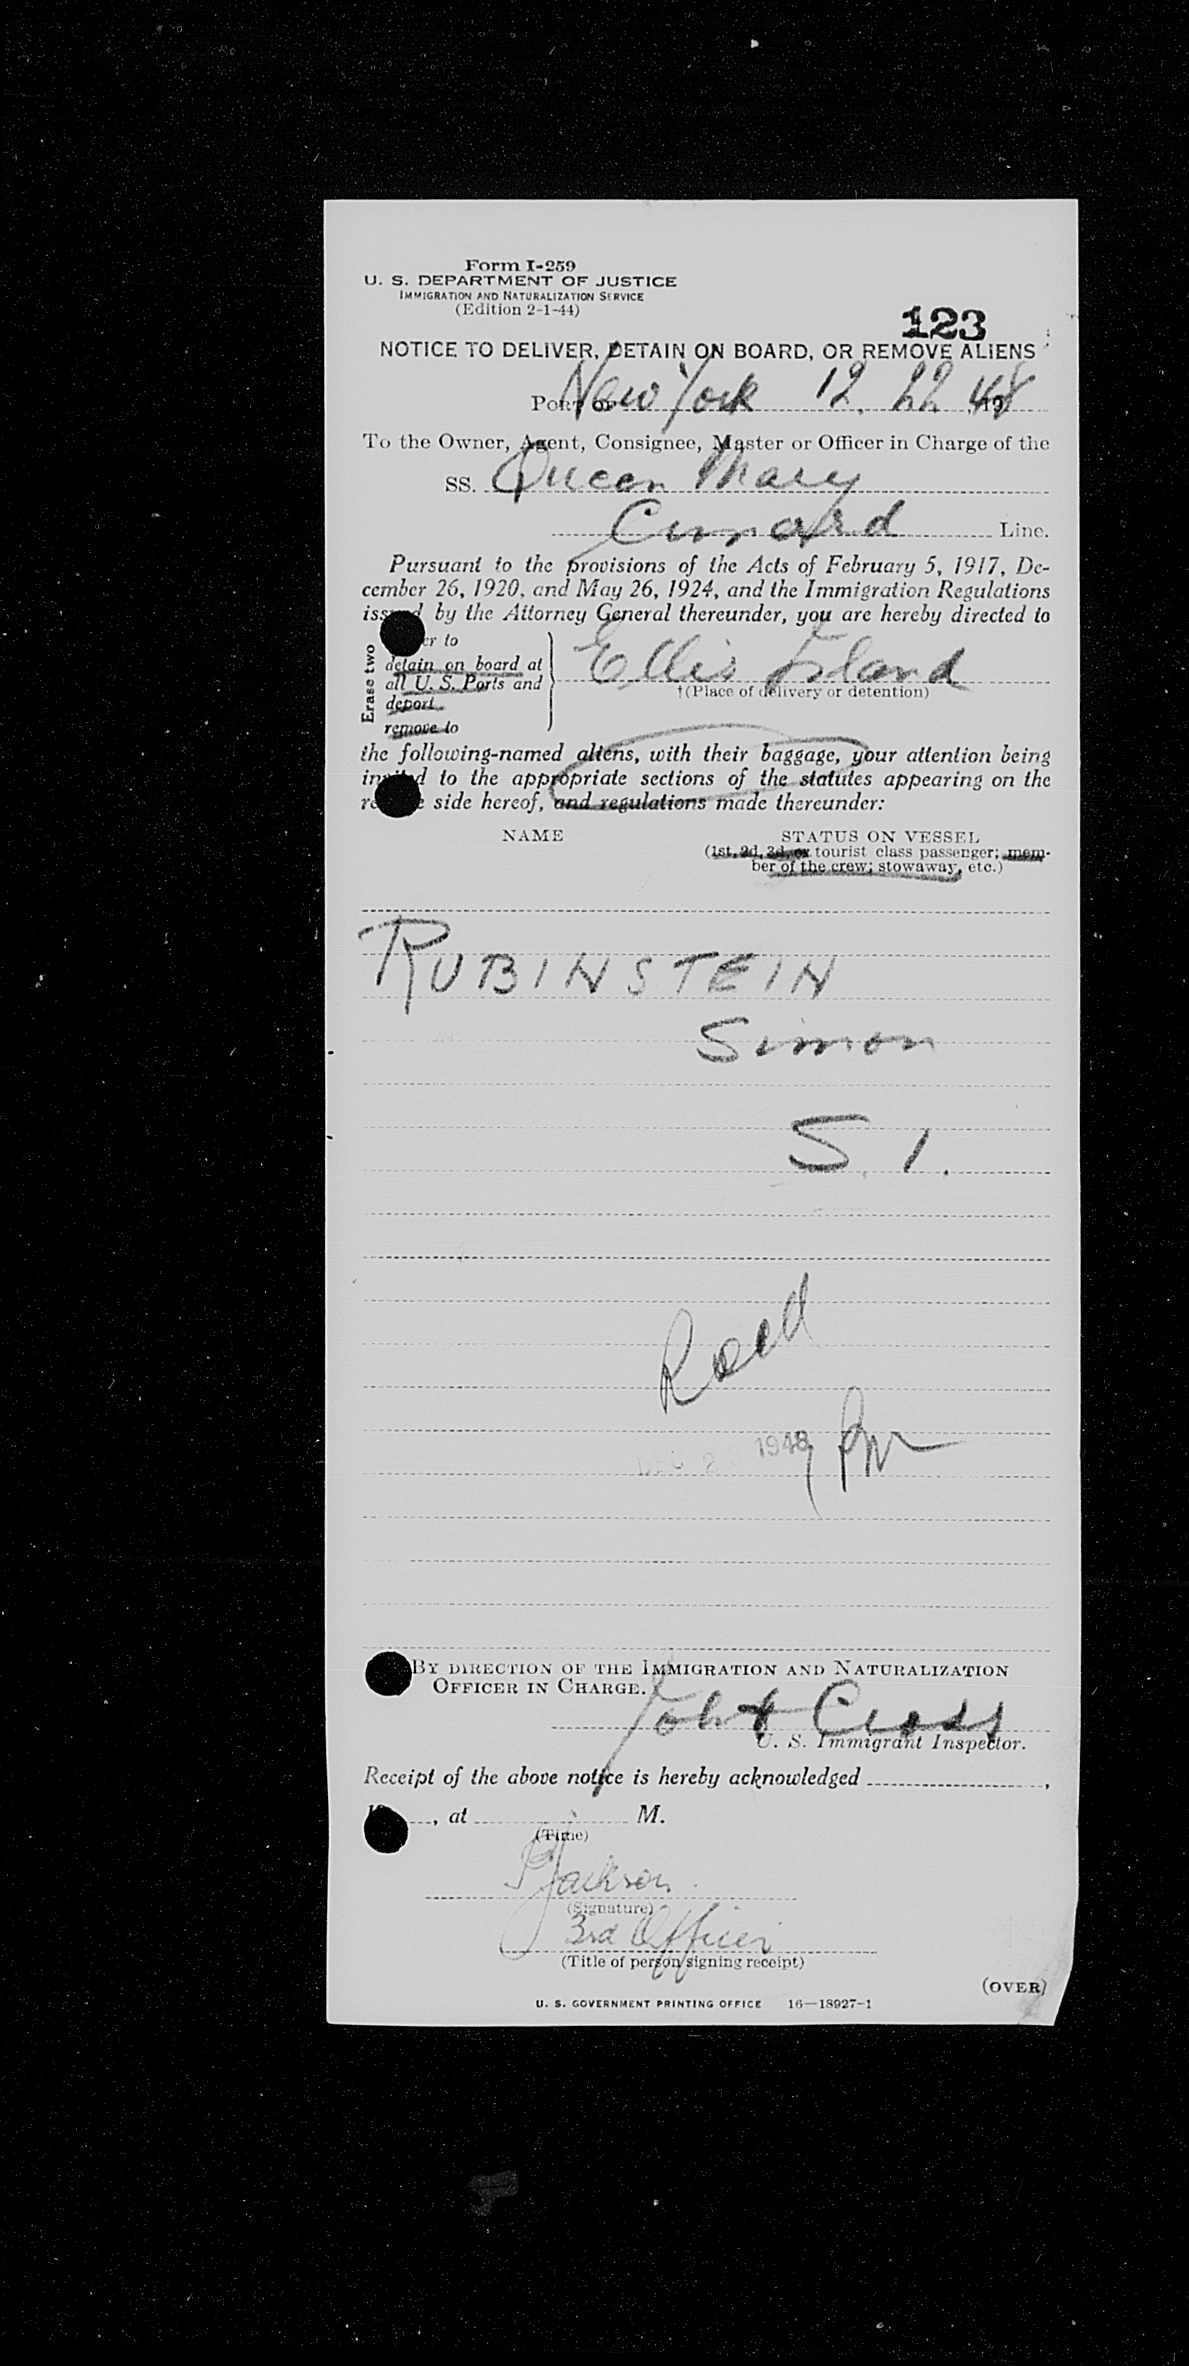 Form I-259
U. S. DEPARTMENT OF JUSTICE
IMMIGRATION AND NATURALIZATION SERVICE
(Edition 2-1-44)
123
NOTICE TO DELIVER, DETAIN ON BOARD, OR REMOVE ALIENS
PORT OF New York 12. 22 1948
To the Owner, Agent, Consignee, Master or Officer in Charge of the
SS. Queen Mary
Cunard Line.
Pursuant to the provisions of the Acts of February 5, 1917, De-
cember 26, 1920, and May 26, 1924, and the Immigration Regulations
issued by the Attorney General thereunder, you are hereby directed to
Erase two
to
detain on board at
all U. S. Ports and
deport
remove to
Ellis Island
†(Place of delivery or detention)
the following-named aliens, with their baggage, your attention being
invited to the appropriate sections of the statutes appearing on the
side hereof, and regulations made thereunder:
NAME
STATUS ON VESSEL
(1st, 2d, 3d, or tourist class passenger; mem-
ber of the crew; stowaway, etc.)
RUBINSTEIN
Simon
S. 1.
1948
BY DIRECTION OF THE IMMIGRATION AND NATURALIZATION
OFFICER IN CHARGE.
Cross
U. S. Immigrant Inspector.
Receipt of the above notice is hereby acknowledged ,
, at M.
(Time)
Jackson
(Signature)
3rd Officer
(Title of person signing receipt)
(OVER)
U. S. GOVERNMENT PRINTING OFFICE 16—18927-1